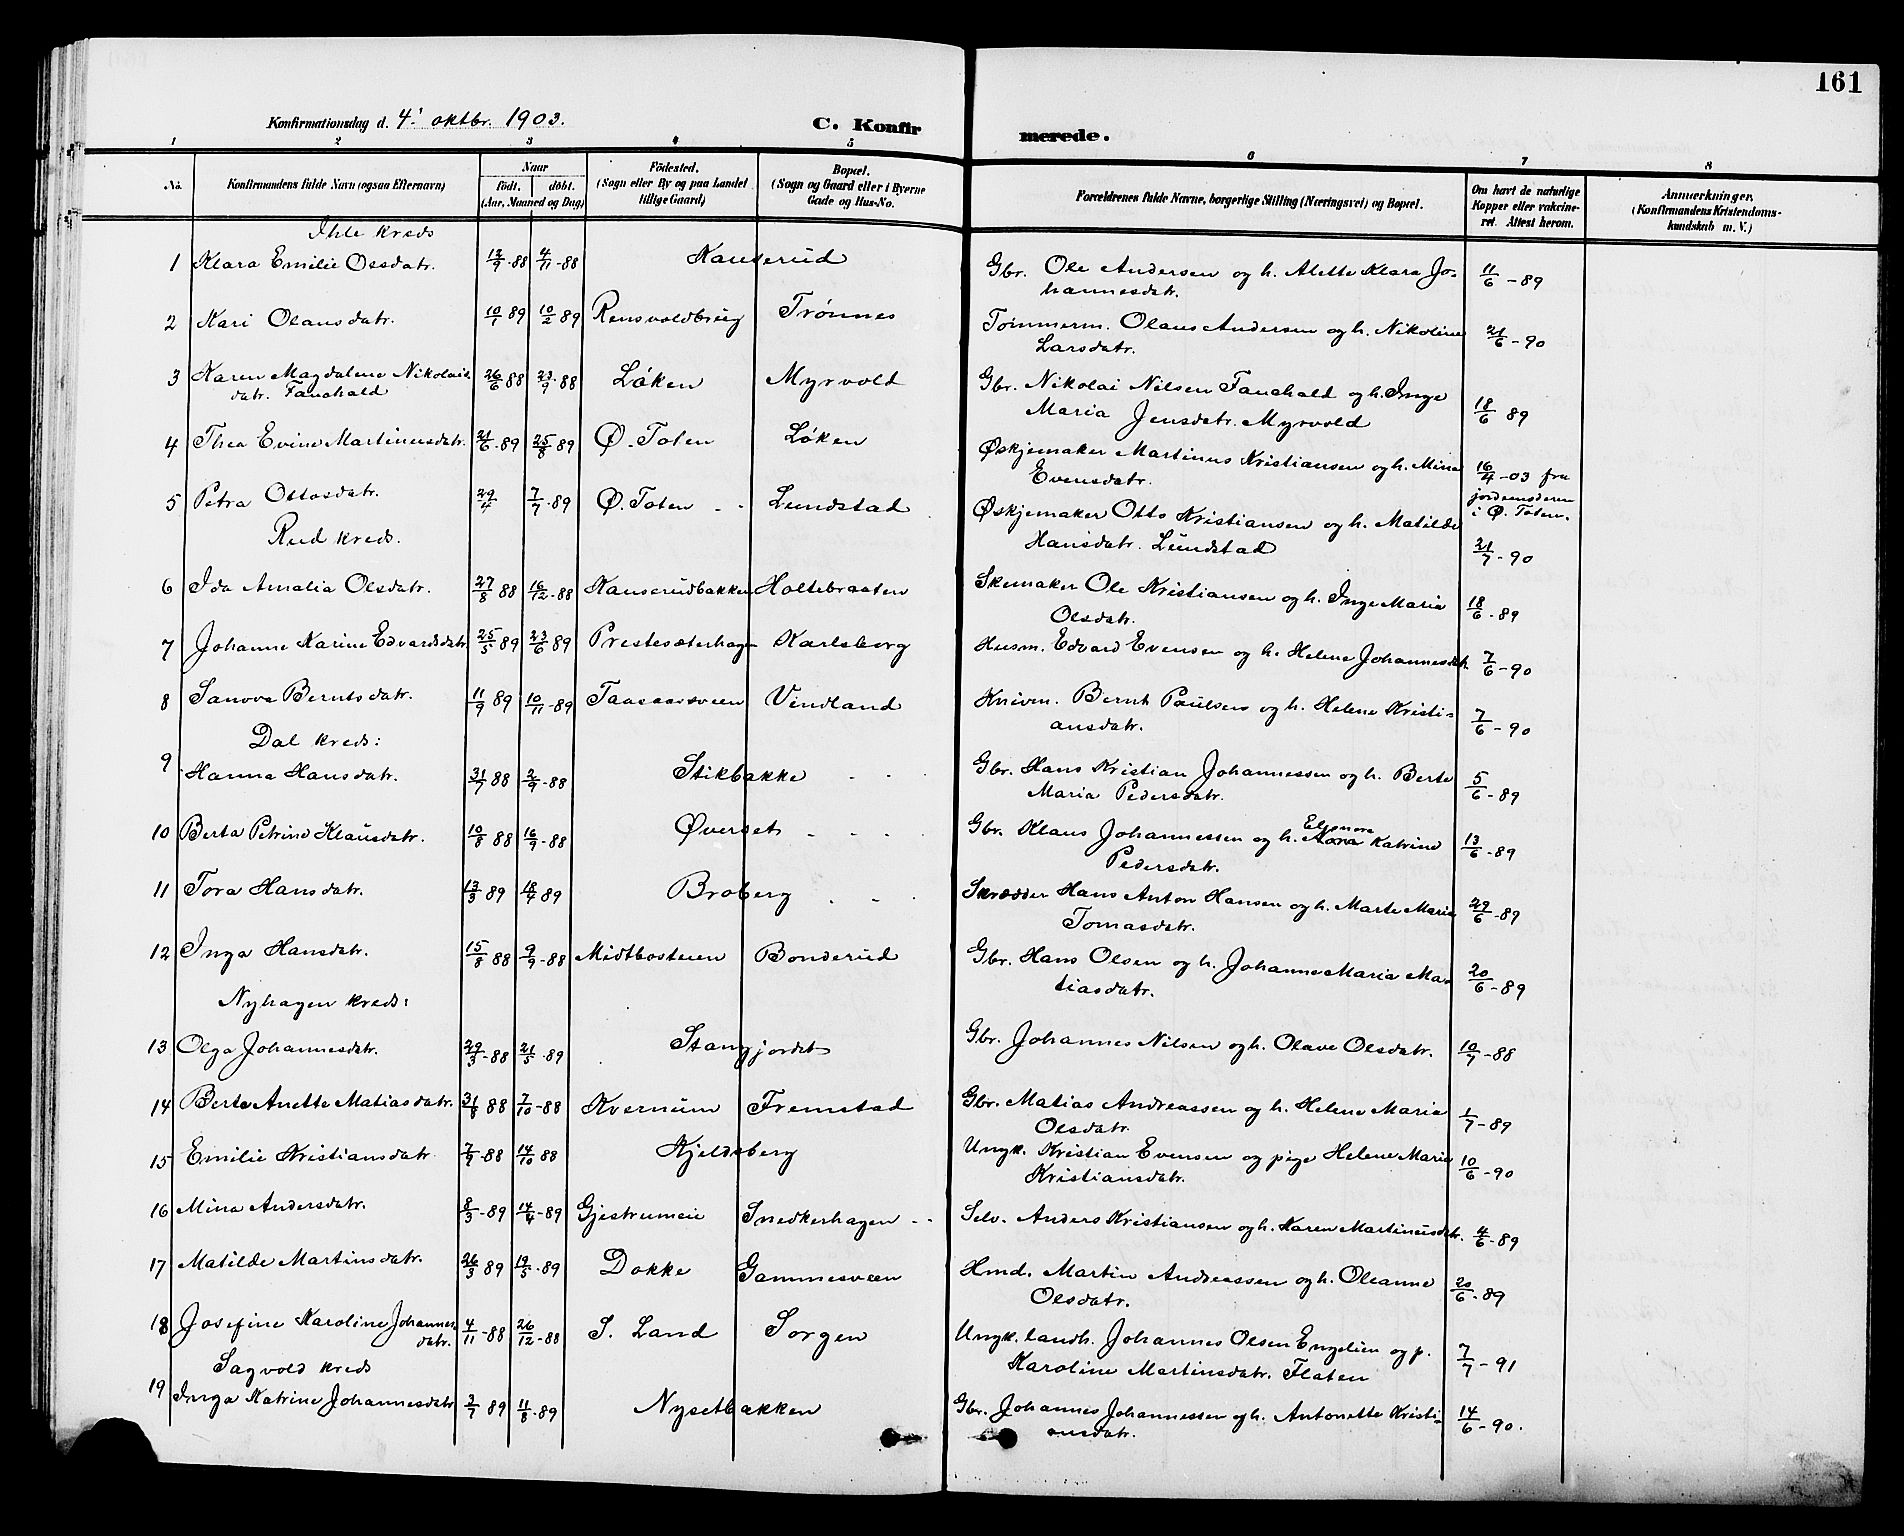 161
Konfirmationsdag d. 4' oktbr. 1903.
C. Konfirmerede.
1 2 3 4 5 6 7 8
No.
Konfirmandens fulde Navn (ogsaa Efternavn)
Naar
födt. döbt.
(Aar, Maaned og Dag)
Födested.
(Sogn eller By og paa Landet
tillige Gaard)
Bopæl.
(Sogn og Gaard eller i Byerne
Gade og Hus-No.
Forældrenes fulde Navne, borgerlige Stilling (Næringsvei) og Bopæl.
Om havt de naturlige
Kopper eller vakcine-
ret. Attest herom.
Anmærkninger.
(Konfirmandens Kristendoms-
kundskab m. V.)
Ihle kreds
1 Klara Emilie Olsdatr. 12/9-88 4/11-88 Kauserud Gbr. Ole Andersen og h. Alette Klara Jo- 11/6-89
hannesdatr.
2 Kari Olausdatr. 10/1 89 10/2 89 Rensvoldbrug Trønnes Tømmerm. Olaus Andersen og h. Nikoline 21/6-90
Larsdatr.
3 Karen Magdalene Nikolai- 26/6 88 23/9-88 Løken Myrvold Gbr. Nikolai Nilsen Fauchald og h. Inge 18/6 89
datr. Fauchald
Maria Jensdatr. Myrvold
4 Thea Evine Martinusdatr. 21/6-89 25/8 89 Ø. Toten Løken Øskjemaker Martinus Kristiansen og h. Mina 16/4-03 fra
Evensdatr. jordemoderen
i Ø. Toten.
5 Petra Ottosdatr. 29/4 7/7-89 Ø. Toten Lundstad Øskjemaker Otto Kristiansen og h. Matilde
Hansdatr. Lundstad 21/7-90
Rud kreds.
6 Ida Amalia Olsdatr. 27/8 88 16/12-88 Kauserudbakken Holtebraaten Skemaker Ole Kristiansen og h. Inge Maria 18/6-89
Olsdatr.
7 Johanne Karine Edvardsdatr. 25/5 89 23/6 89 Prestesæterhagen Karlsborg Husm. Edvard Evensen og h. Helene Johannesdatr. 7/6-90
8 Sanova Berntsdatr. 11/9 89 10/11-89 Taasaasveen Vindland Knivm. Bernt Paulsen og h. Helene Kristi- 7/6-90
ansdatr.
Dal kreds:
9 Hanna Hansdatr. 31/7 88 2/9-88 Stikbakke Gbr. Hans Kristian Johannessen og h. Berte 5/6-89
Maria Pedersdatr.
10 Berta Petrine Klausdatr. 10/8 88 16/9-88 Øverset Gbr. Klaus Johannessen og h. Eleonora Katrine 13/6-89
Pedersdatr.
11 Tora Hansdatr. 13/3 89 18/4 89 Broberg Skrædder Hans Anton Hansen og h. Marte Marie 29/6-89
Tomasdatr.
12 Inga Hansdatr. 15/8 88 9/9-88 Midtbosteien Bonderud Gbr. Hans Olsen og h. Johanne Maria Ma- 20/6-89
tiasdatr.
Nyhagen kreds:
13 Olga Johannesdatr. 29/3-88 21/5-89 Stangjordet Gbr. Johannes Nilsen og h. Olave Olsdatr. 10/7-88
14 Berte Anette Matiasdatr. 31/8 88 7/10-88 Kvernum Fremstad Gbr. Matias Andreassen og h. Helene Maria 1/7-89
Olsdatr.
15 Emilie Kristiansdatr. 7/9-88 14/10 88 Kjeldsberg Ungk. Kristian Evensen og pige Helene Maria 10/6-90
Kristiansdatr.
16 Mina Andersdatr. 8/3-89 14/4-89 Gjestrumeie Snedkerhagen Selv. Anders Kristiansen og h. Karen Martinusdatr. 4/6-89
17 Matilde Martinsdatr. 26/3 89 19/5-89 Dokke Gammesveen Hmd. Martin Andreassen og h. Oleanne 20/6-89
Olsdatr.
18 Josefine Karoline Johannes- 4/11-88 26/12-88 S. Land Sorgen Ungk. landh. Johannes Olsen Engelien og p. 7/7-91
datr.
Karoline Martinsdatr. Flaten
Sagvold kreds
19 Inga Katrine Johannesdatr. 3/7 89 11/8-89 Nysetbakken Gbr. Johannes Johannessen og h. Antonette Kristi- 14/6-90.
ansdatr.